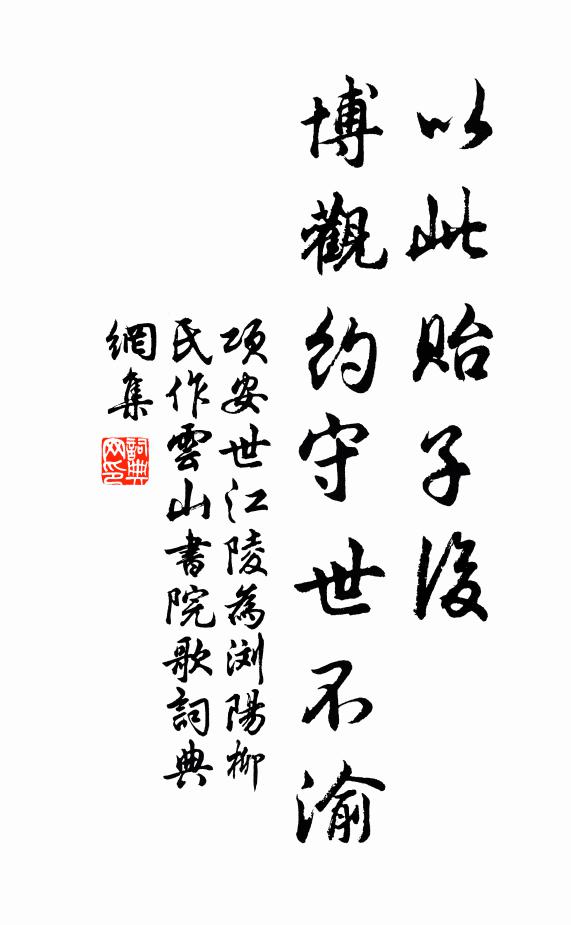 以此貽子後
博觀約守世不渝
項安世江陵為浏陽柳
氏作雲山書院歌詞典
網集
詞典網印